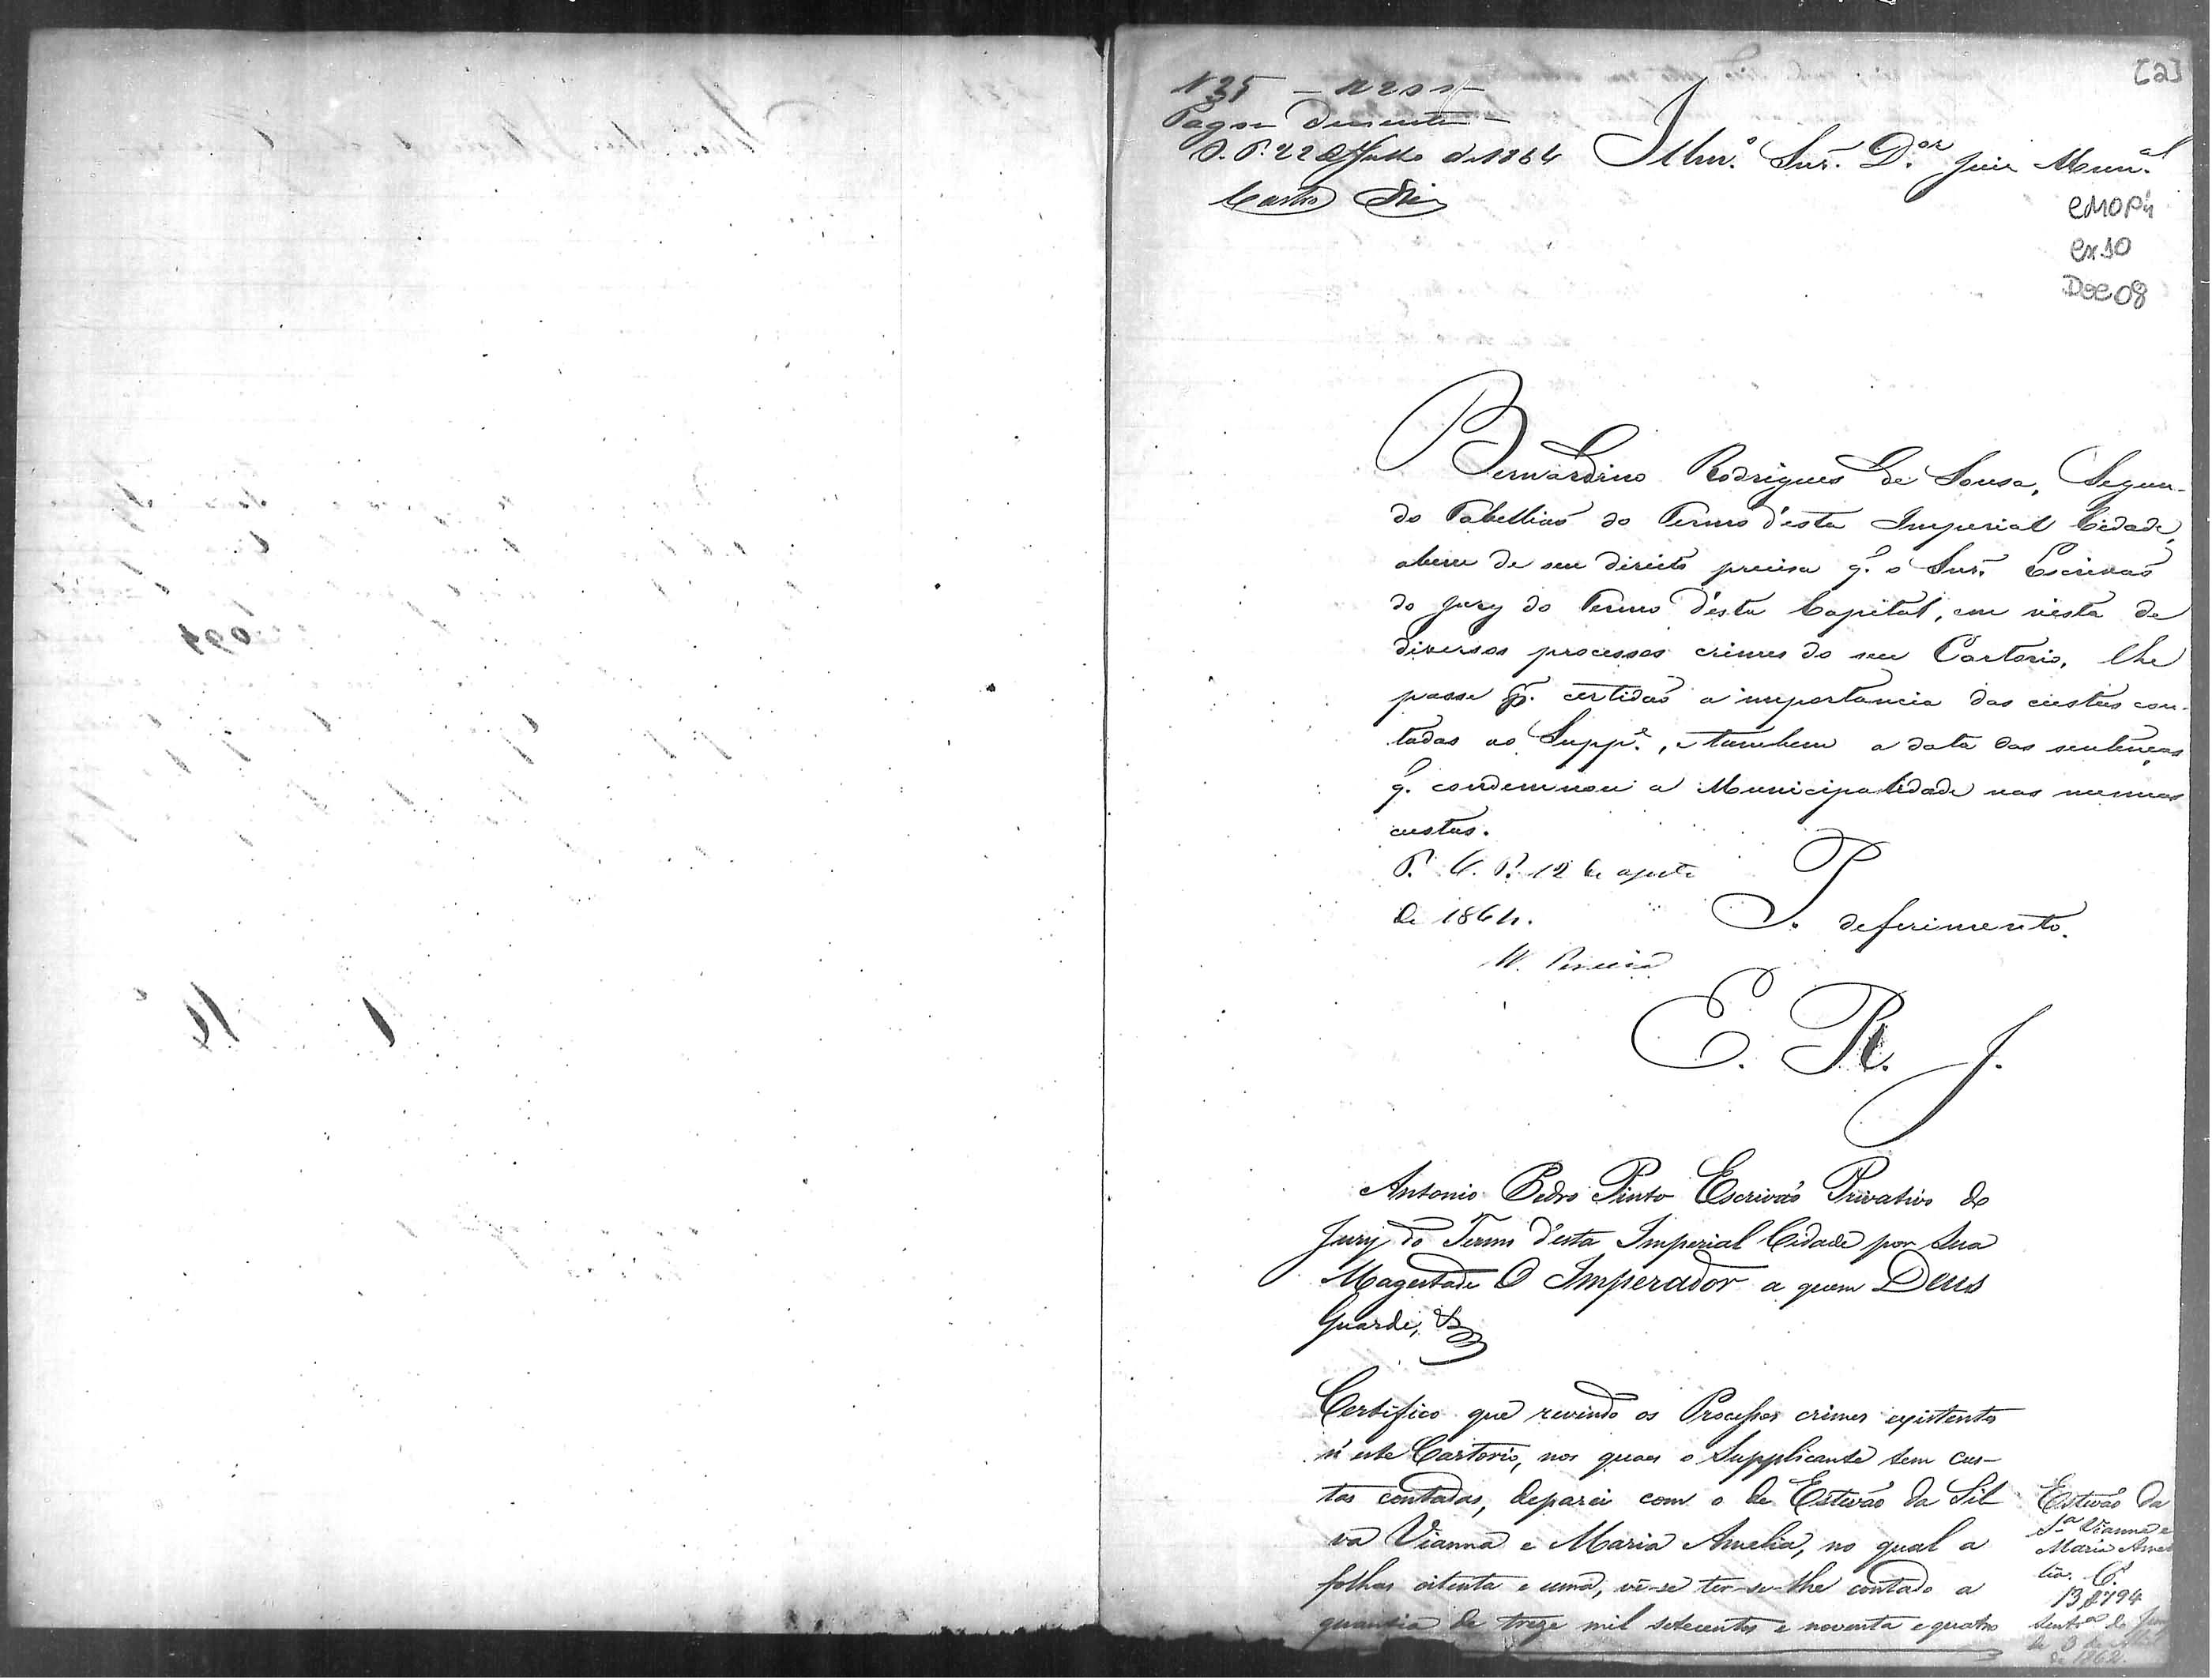 [2]
N 25 — R 200
Pagou duzentos
O. P. 22 de Julho de 1864
Castro
Illmº. Snr. D.or Juiz Mun.al
CMOP
Cx 10
Doc 08
Bernardino Rodrigues de Sousa, Segun-
do Tabelliaõ do Termo d'esta Imperial Cidade,
abem de seu direito precisa q. o Snr. Escrivaõ
do Jury do Termo d'esta Capital, em vista de
diversos processos crimes do seu Cartorio, lhe
passe p. certidaõ a importancia das custas con-
tadas ao Supp.e, e tambem a data das sentenças
q. condemnou a Municipalidade nas mesmas
custas.
P. O. P. 12 de agosto
de 1864.
P. deferimento.
M. Pereira
E. R. J.
Antonio Pedro Pinto Escrivão Privativo do
Jury do Termo d'esta Imperial Cidade por Sua
Magestade O Imperador a quem Deus
Guarde, &
Certifico que revindo os Processos crimes existentes
n'este Cartorio, nos quaes o Supplicante tem cus-
tas contadas, deparei com o de Estevão da Sil
va Vianna e Maria Amelia, no qual a
folhas oitenta e uma, vê-se ter-se-lhe contado a
quantia de treze mil setecentos e noventa e quatro
Estevão da
S.a Vianna e
Maria Ame
lia. C.
13$794
Sent.a do Jury
de 3 de Abril
de 1862.